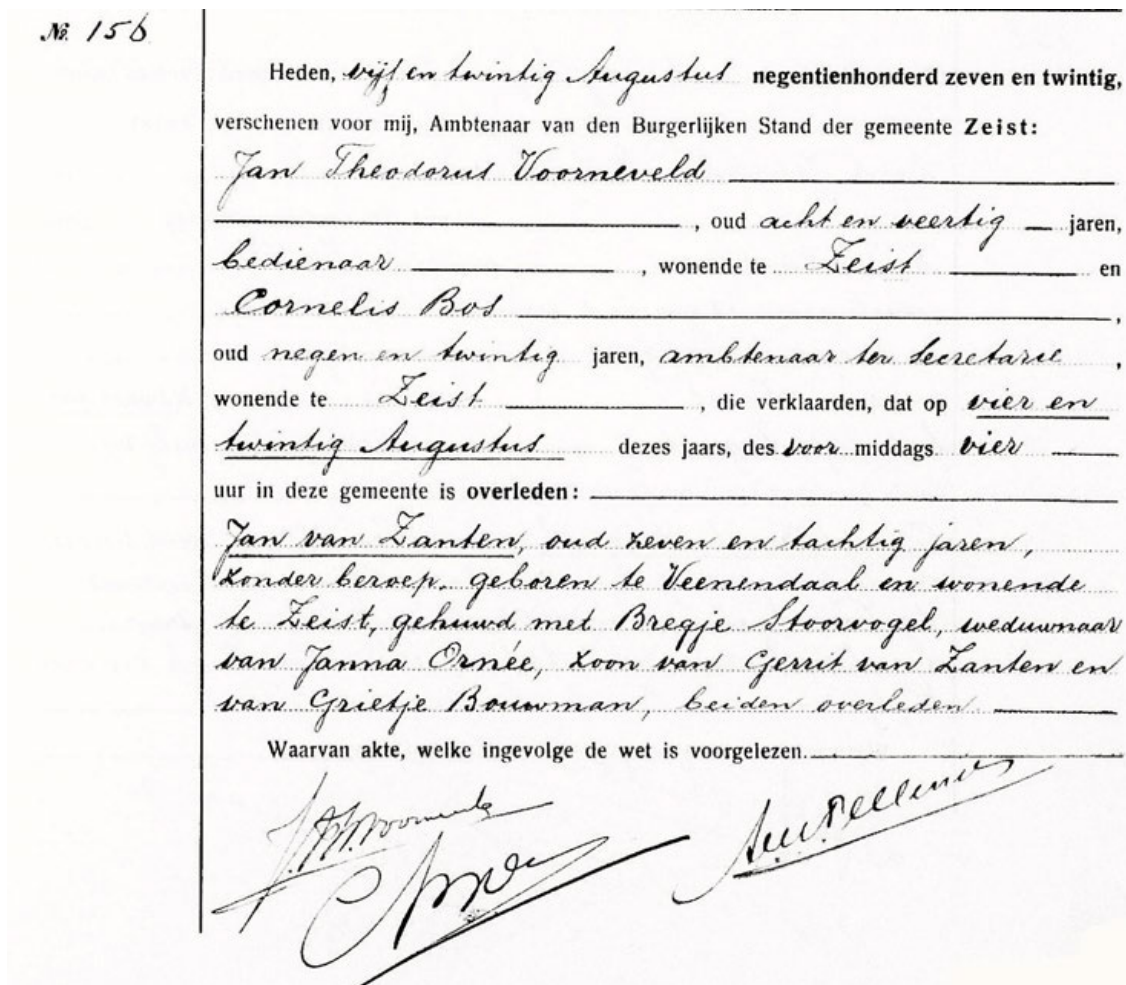 № 156
Heden, vijf en twintig Augustus negentienhonderd zeven en twintig,
verschenen voor mij, Ambtenaar van den Burgerlijken Stand der gemeente Zeist:
Jan Theodorus Voorneveld
, oud acht en veertig jaren,
bedienaar , wonende te Zeist en
Cornelis Bos ,
oud negen en twintig jaren, ambtenaar ter secretarie ,
wonende te Zeist , die verklaarden, dat op vier en
twintig Augustus dezes jaars, des voor middags vier
uur in deze gemeente is overleden:
Jan van Zanten, oud zeven en tachtig jaren,
zonder beroep, geboren te Veenendaal en wonende
te Zeist, gehuwd met Bregje Stoorvogel, weduwnaar
van Janna Ornée, zoon van Gerrit van Zanten en
van Grietje Bouwman, beiden overleden.
Waarvan akte, welke ingevolge de wet is voorgelezen.